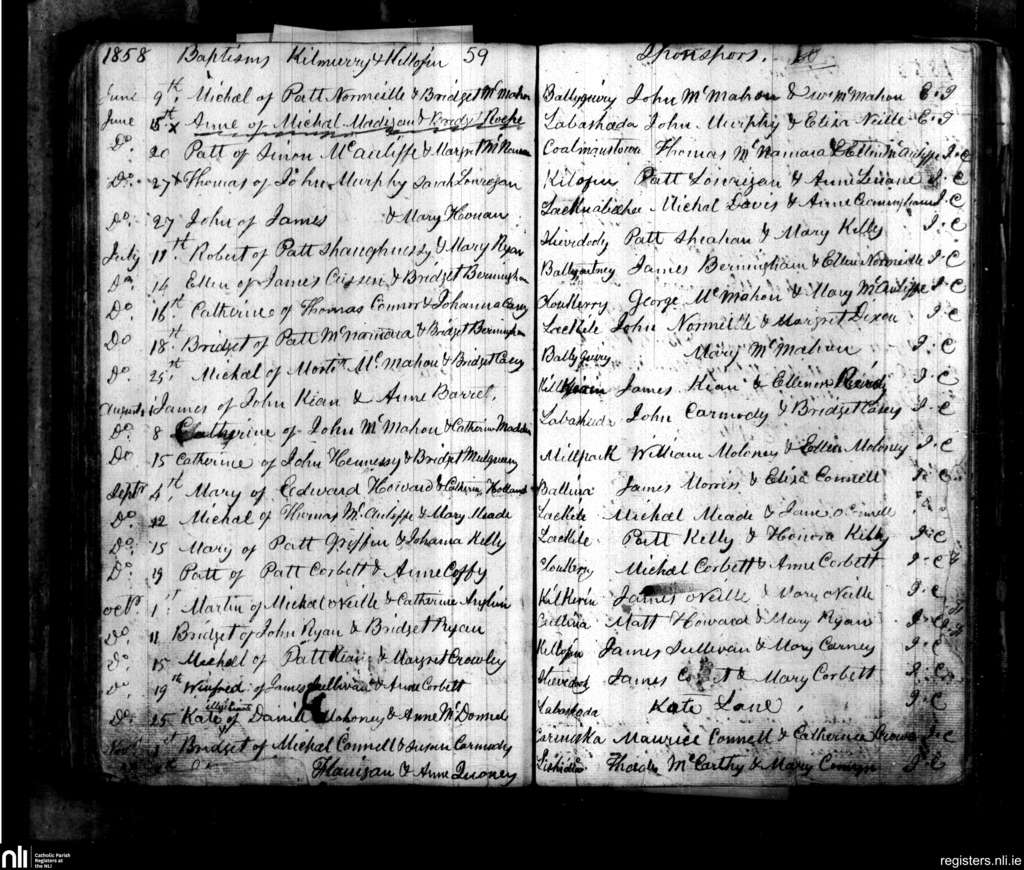 1858 Baptisms Kilmurry & Killofin 59
June 9th Michal of Patt Normeille & Bridget McMahon
June 15th x Anne of Michal Madigan & Bridget Roche
Do 20 Patt of Simon McAuliffe & Margret
Do 27 x Thomas of John Murphy Sarah Lonregan
Do 27 John of James & Mary Honan
July 11th Robert of Patt Shaughnessy & Mary Ryan
Do 14 Ellen of James & Bridget Bermingham
Do 16th Catherine of Thomas Connor & Johanna Casey
Do 18th Bridget of Patt McNamara & Bridget Bermingham
Do 25th Michal of Mortn McMahon & Bridget Casey
August James of John Kian & Anne Barret
Do 8 Catherine of John McMahon & Catherine Madden
Do 15 Catherine of John Hennessy & Bridget
Septr 4th Mary of Edward Howard & Catherine Holland
Do 12 Michal of Thomas McAuliffe & Mary Meade
Do 15 Mary of Patt Griffin & Johanna Kelly
Do 19 Patt of Patt Corbett & Anne Coffy
Octr 1st Martin of Michal oNeille & Catherine
Do 11 Bridget of John Ryan & Bridget Ryan
Do 15 Michal of Patt Kian & Margret Crowley
Do 19th Winfred of James Sullivan & Anne Corbett
Do 25 Kate of Daniel Mahoney & Anne McDonnel
Novr 1st Bridget of Michal Connell & Susan Carmody
Flanigan & Anne
Sponspors. 60
Ballyguiry John McMahon & McMahon
Labashada John Murphy & Eliza Neille
Thomas McNamara & Ellen McAuliffe I.C
Kilofin Patt Lonrigan & Anne I.C
Michal Davis & Anne Cunningham I.C
Shevdody Patt Sheahan & Mary Kelly I.C
Ballyartney James Bermingham & Ellen Normeille I.C
George McMahon & Mary McAuliffe I.C
Lackile John Normeille & Margret Dixon I.C
Ballyguiry Mary McMahon I.C
James Kian & Ellenor I.C
Labashada John Carmody & Bridget Casey I.C
Millpark William Moloney & Ellen Moloney I.C
Ballina James Morris & Eliza Connell
Lackile Michal Meade & Jane oConnell
Lackile Patt Kelly & Honora Kelly I.C
Michal Corbett & Anne Corbett I.C
Kilkerin James oNeille & Mary oNeille I.C
Matt Howard & Mary Ryan I.C
Kellofin James Sullivan & Mary Carney I.C
Shevdody James & Mary Corbett I.C
Labashada Kate Lane I.C
Maurice Connell & Catherine I.C
McCarthy & Mary I.C
nli Catholic Parish Registers at the NLI
registers.nli.ie